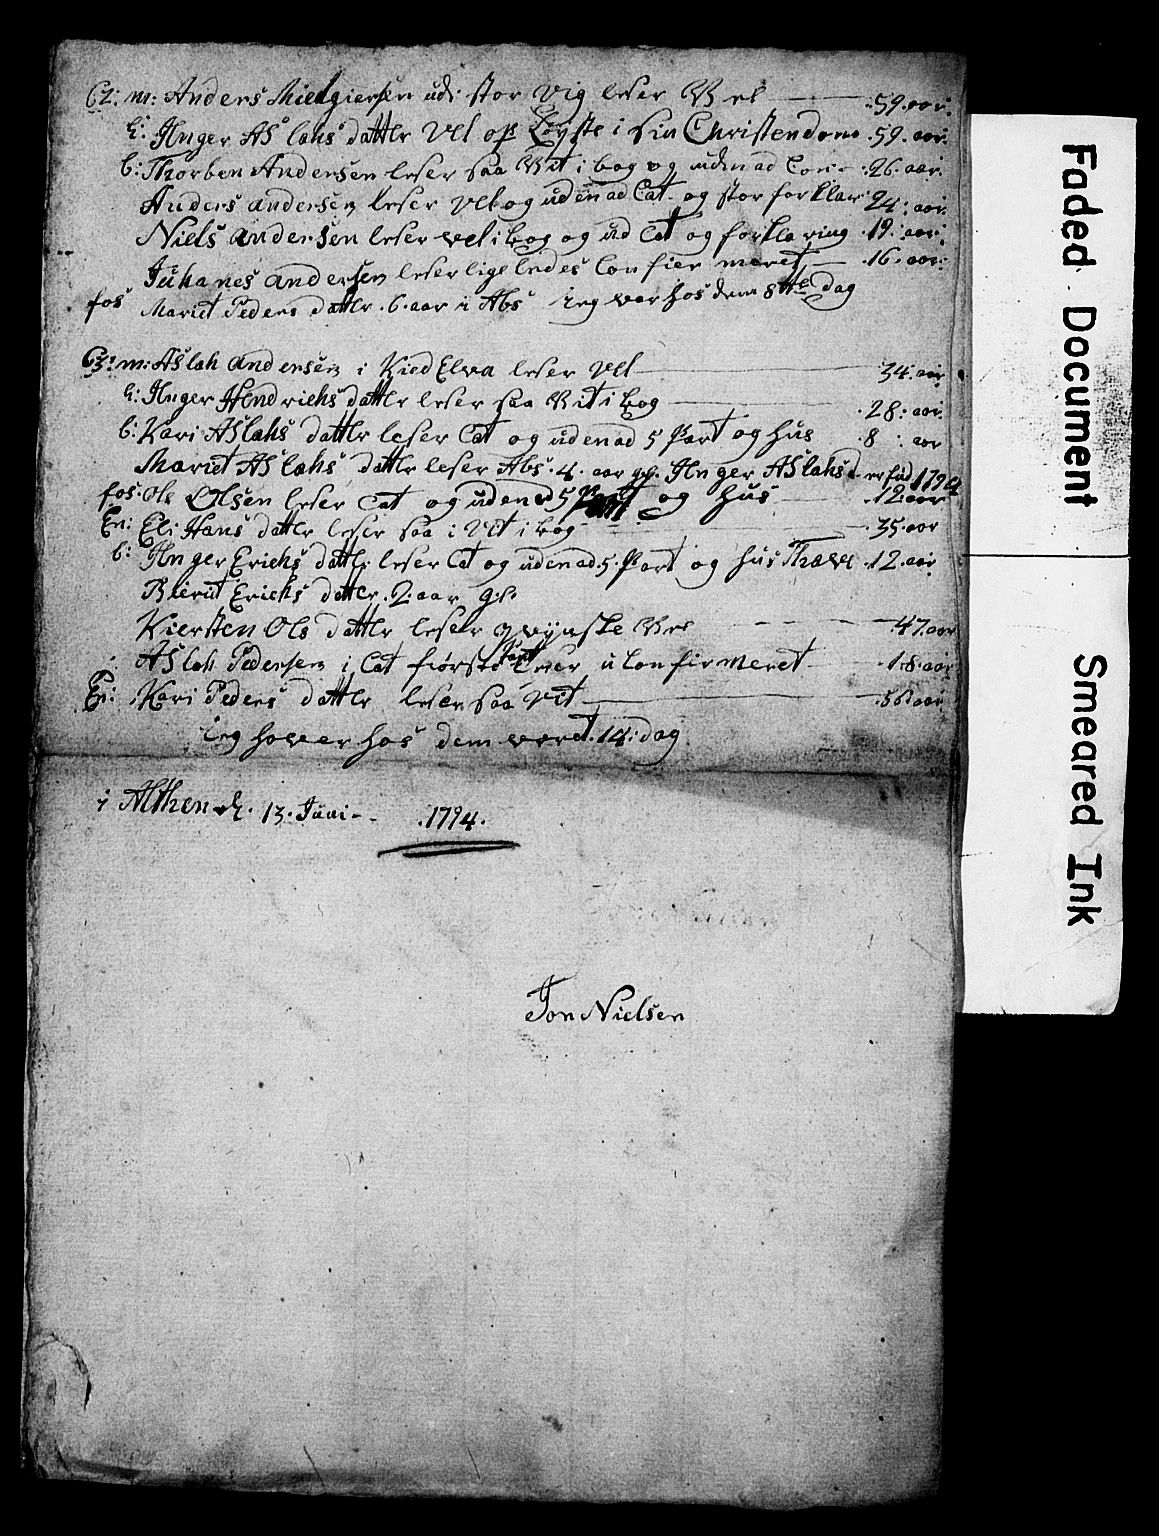 62: m: Anders Mielgiersen udi stor vig leser Vel 59. aar:
k: Inger Aslahs dattr vel op Løyste i sin Christendom .59. aar:
b: Thorben Andersen leser saa Vit i bog og udenad Con- .26. aar.
Anders andersen leser vel og udenad Cat. og stor forklar 24: aar.
Niels andersen leser vel i bog og ud Cat og forklaring .19: aar:
Juhanes andersen leser lige ledes Con fier meret .16. aar:
fos Mariet Peders dattr .6. aar i Abs ieg var hos dem 8tte dag
63: m: Aslah andersen i Kied Elva leser Vel 34. aar
k: Inger Hendriehs dattr leser saa Vit i bog .28: aar.
b: Kari Aslahs dattr leser Cat og udenad 5 Part og hus .8 : aar
Mariet Aslahs dattr leser Abs. 4. aar gl. Inger Aslahs d. er fúd 1794
fos: Ole Olsen leser Cat og udenad 5 Part og hus .12 aar
En: Eli Hans dattr leser saa i Vit i bog .35. aar
b: Inger Eriehs dattr leser Cat og udenad .5. Part og hus Thavle .12. aar
Bierit Eriehs dattr .2. aar gl.
Kiersten Ols dattr leser gvynske Vel .47. aar
Aslah Pedersen i Cat første Part leser u Confirmeret .18. aar
En: Kari Peders dattr leser saa Vit .56 aar
ieg haver hos dem været .14: dag
i Althen d. 13. Juni - - .1794.
Jon Nielsen
Faded Document
Smeared Ink